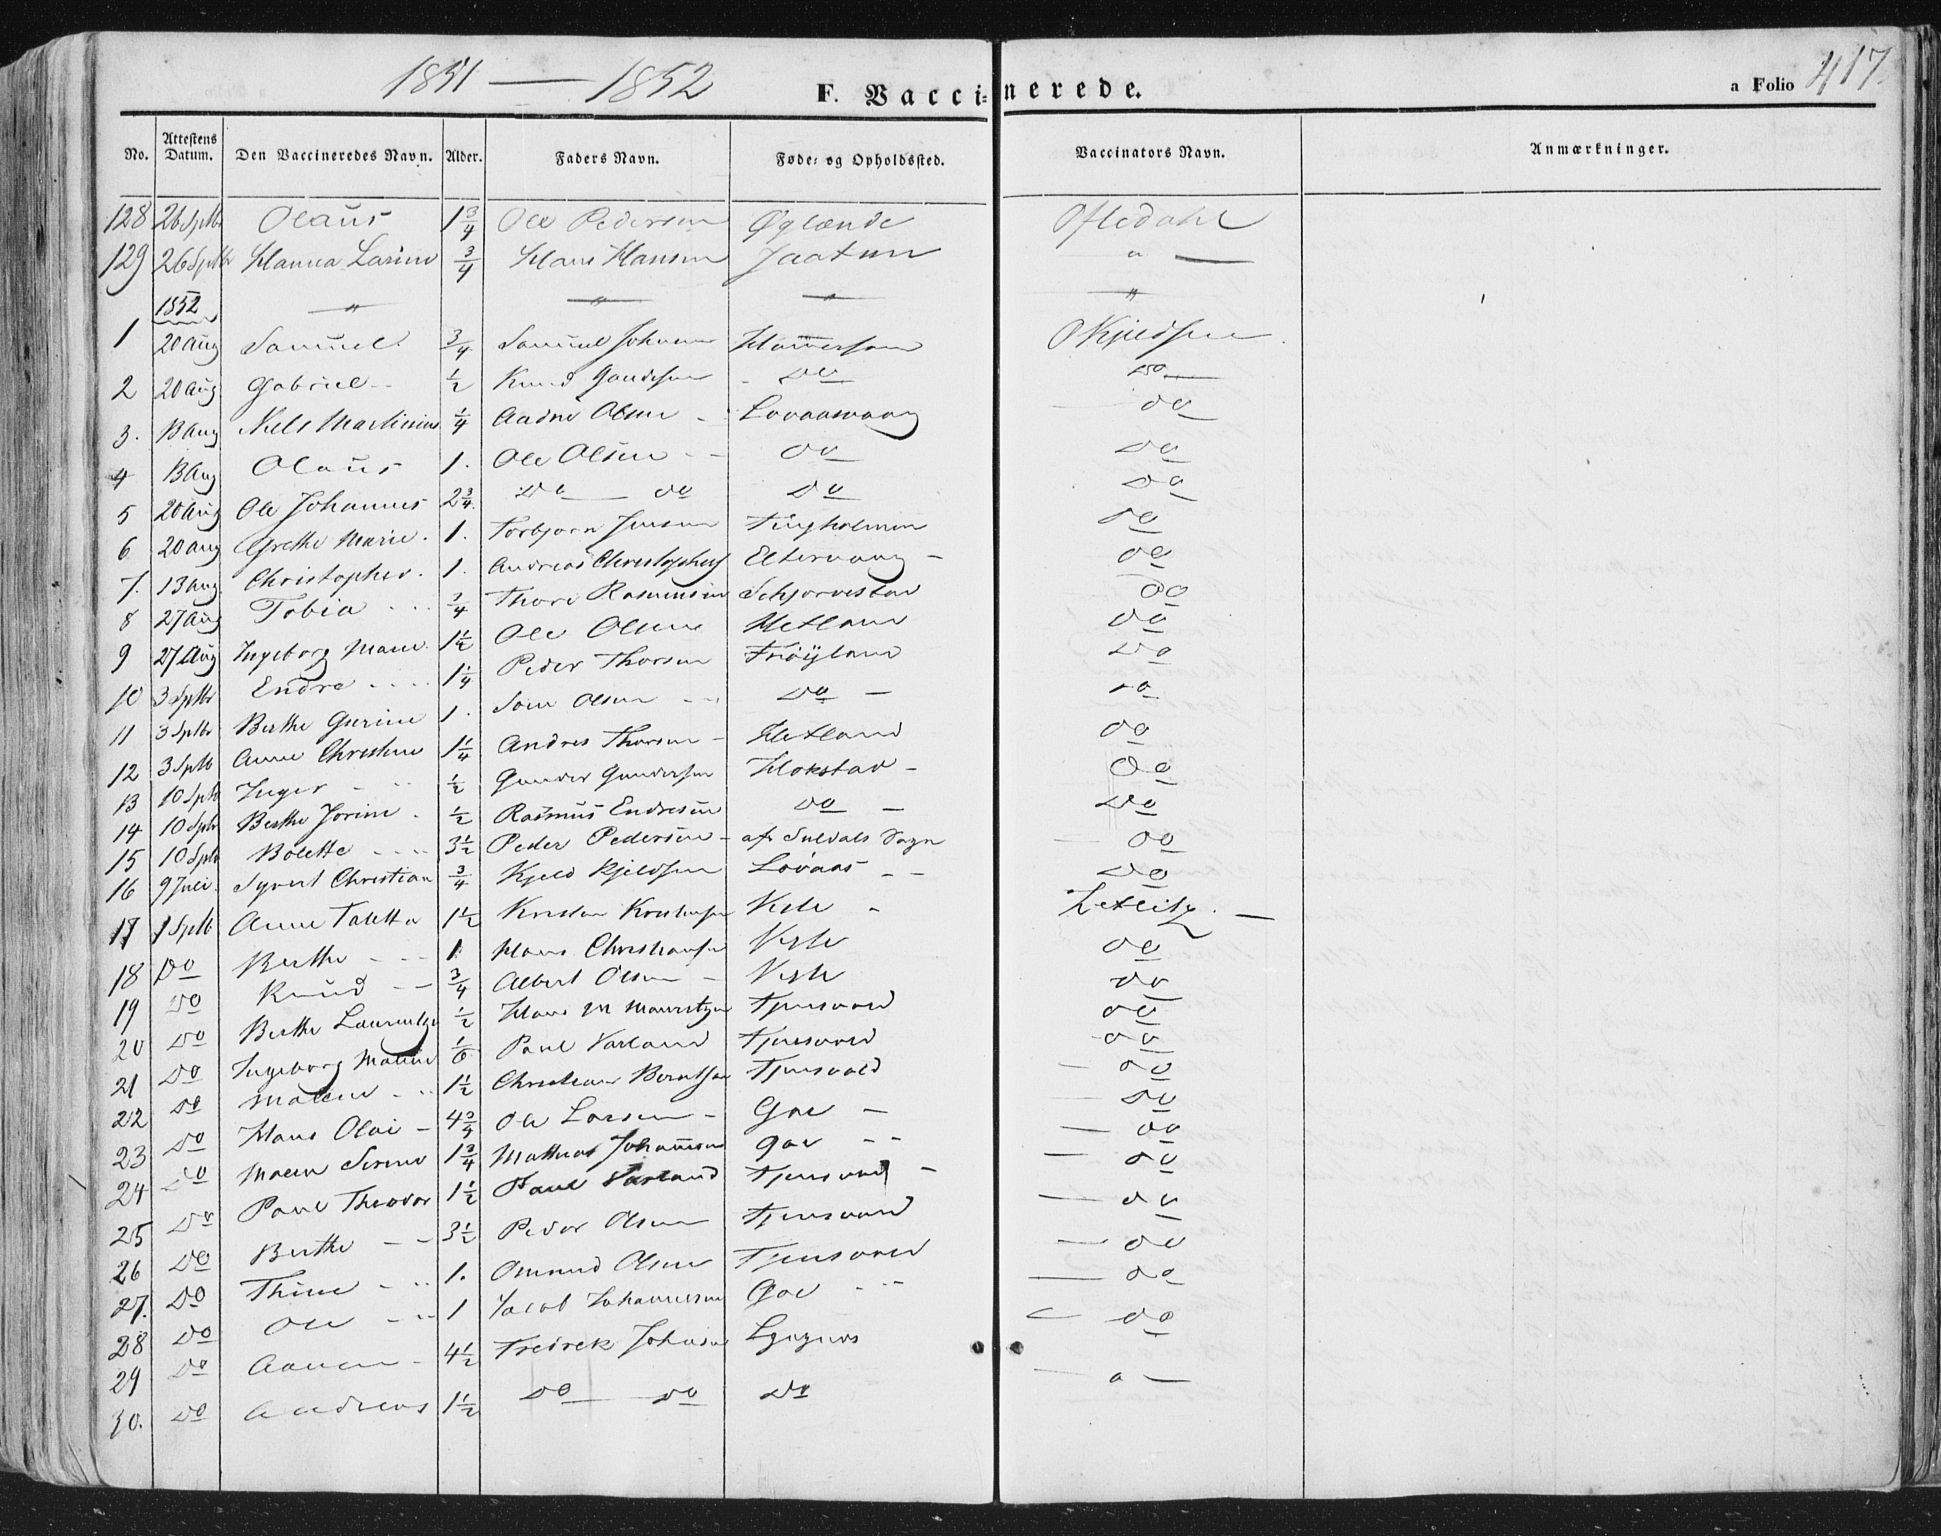 1851 — 1852 F. Vaccinerede. a Folio 417.
No. Attestens Datum. Den Vaccineredes Navn. Alder. Faders Navn. Føde- og Opholdssted. Vaccinators Navn. Anmærkninger.
128 26 Septbr Olaus 1 3/4 Ole Pedersen Øglænde Oftedahl
129 26 Septbr Hanna Larine 3/4 Hans Hansen Jaatun " —
1852 " " " "
1 20 Aug Samuel 3/4 Samuel Johnsen Kjeldsen
2 20 Aug Gabriel ½ Knud Do Do
3. 13 Aug Niels Martinius ¼ Aadne Olsen Do
4 13 Aug Olaus 1. Ole Olsen Do Do
5 20 Aug Ole Johannes 2 3/4 Do Do Do Do
6 20 Aug Grethe Marie. 1. Torbjørn Jensen Tingholmen Do
7. 13 Aug. Christopher. 1. Andreas Eltervaag Do
8 27 Aug Tobia 3/4 Thore Rasmussen Do
9 27 Aug Ingeborg Marie 1½ Ole Olsen Hetland Do
10 3 Septbr Endre 1¼ Peder Thorsen Frøyland Do
11 3 Septbr Berthe Gurine 1. Olsen Do Do
12 3 Septb Anne Christine 1¼ Andres Thorsen Hetland Do
13 10 Septb Inger ½ Gunder Gundersen Do
14 10 Septb Berthe Jorine ½ Rasmus Endresen Do Do
15 10 Septb Bolette 3½ Peder Pedersen af Suldals Sogn Do
16 9 Juli Syvert Christian 3/4 Kjeld Kjeldsen Lovaas Do
17 1 Septb Anne Taletta 1½ Zetlitz
18 Do Berthe 1 Hans Christiansen Do
19 Do Knud 3/4 Albert Olsen Do
20 Do Berthe ½ Hans M Mauritzen Tjensvold Do
21 Do Ingeborg Malene 1/6 Paul Varland Tjensvold Do
22 Do Malene 1½ Christian Berntsen Tjensvold Do
23 Do Hans Olai 4 3/4 Ole Larsen Goe Do
24 Do Malene Serine 1 3/4 Mathias Johannesen Goe Do
25 Do Paul Theodor 1½ Paul Varland Tjensvold Do
26 Do Berthe 3½ Peder Olsen Tjensvold Do
27. Do Thine 1. Ommund Olsen Tjensvold Do
28 Do Ole 1 Jacob Johannesen Goe Do
29 Do 4½ Fredrek Johnsen Do
30. Do Andreas 1½ Do Do Do " —